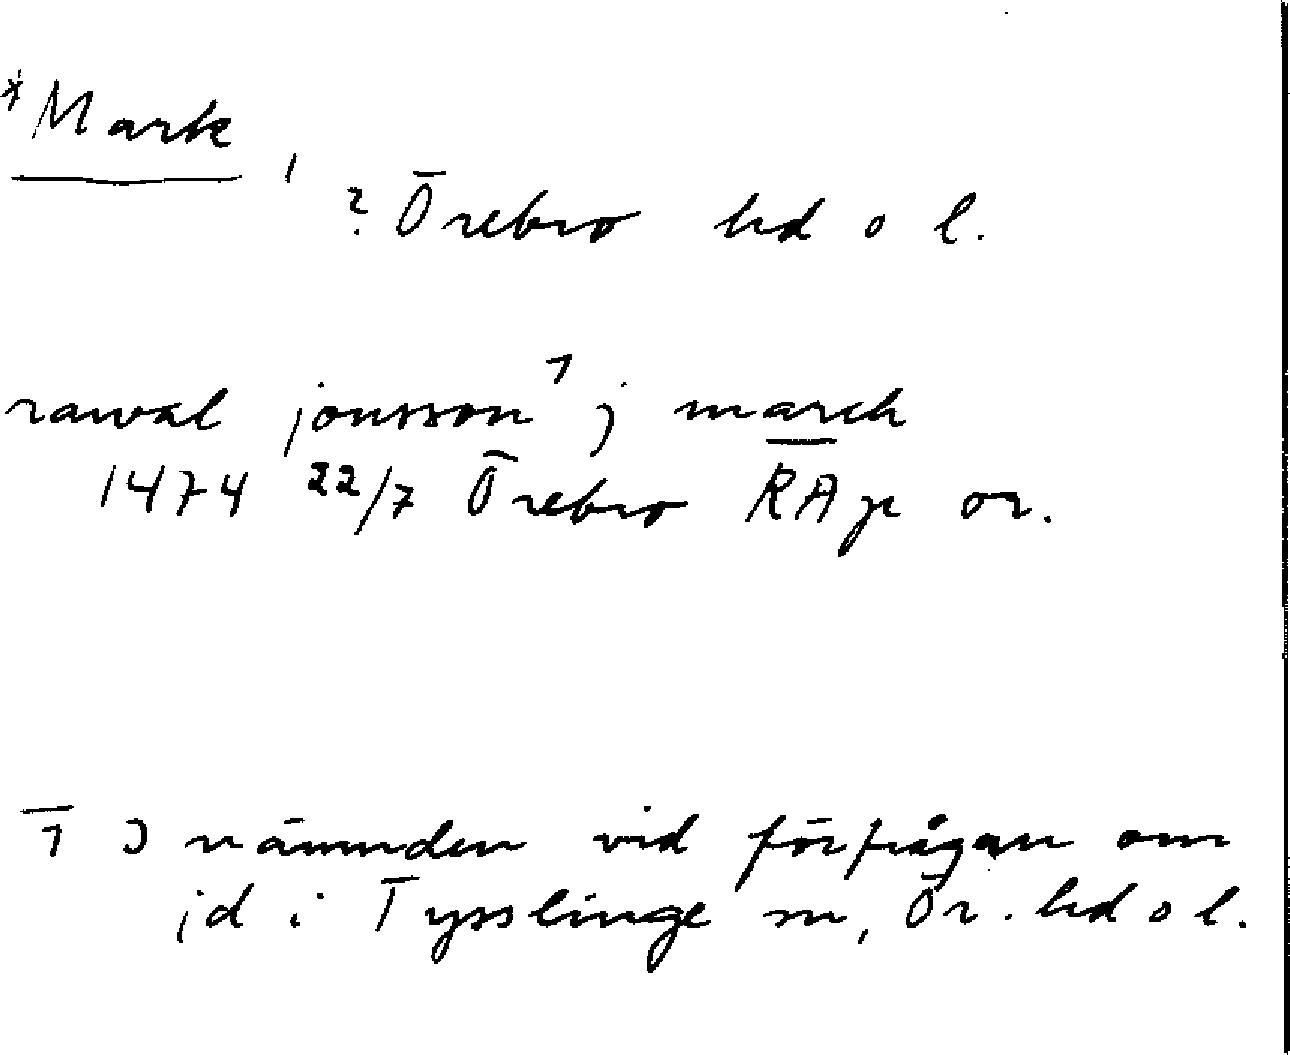 *Mark,
? Örebro hd o l.
rawal jonsson¹ j march
1474 22/7 Örebro RAp or.
1 I nämnden vid förfrågan om
jd i Tysslinge sn, Ör. hd o l.